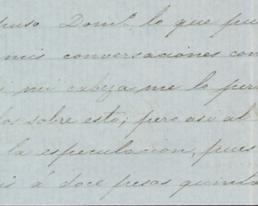 puso Domo. lo que pue
mis conversaciones con
i mi cabeza me lo per
los sobre esto; pero asi al
la especulacion, pues
is á doce pesos quinta